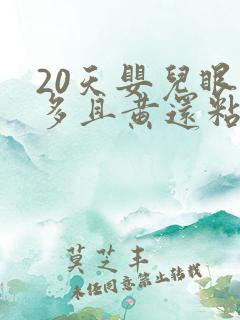 20天嬰兒眼
多且黄還粘
莫芝丰
未经同意禁止转载